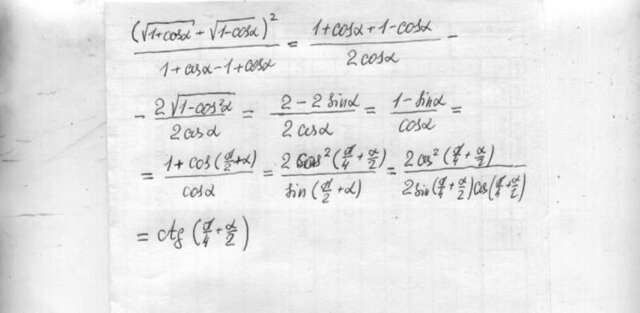 (√1+cosα + √1-cosα)² / 1+cosα-1+cosα = 1+cosα+1-cosα / 2cosα -
- 2√1-cos²α / 2cosα = 2-2sinα / 2cosα = 1-sinα / cosα =
= 1+cos(π/2+α) / cosα = 2cos²(π/4+α/2) / sin(π/2+α) = 2cos²(π/4+α/2) / 2sin(π/4+α/2)cos(π/4+α/2)
= ctg(π/4+α/2)